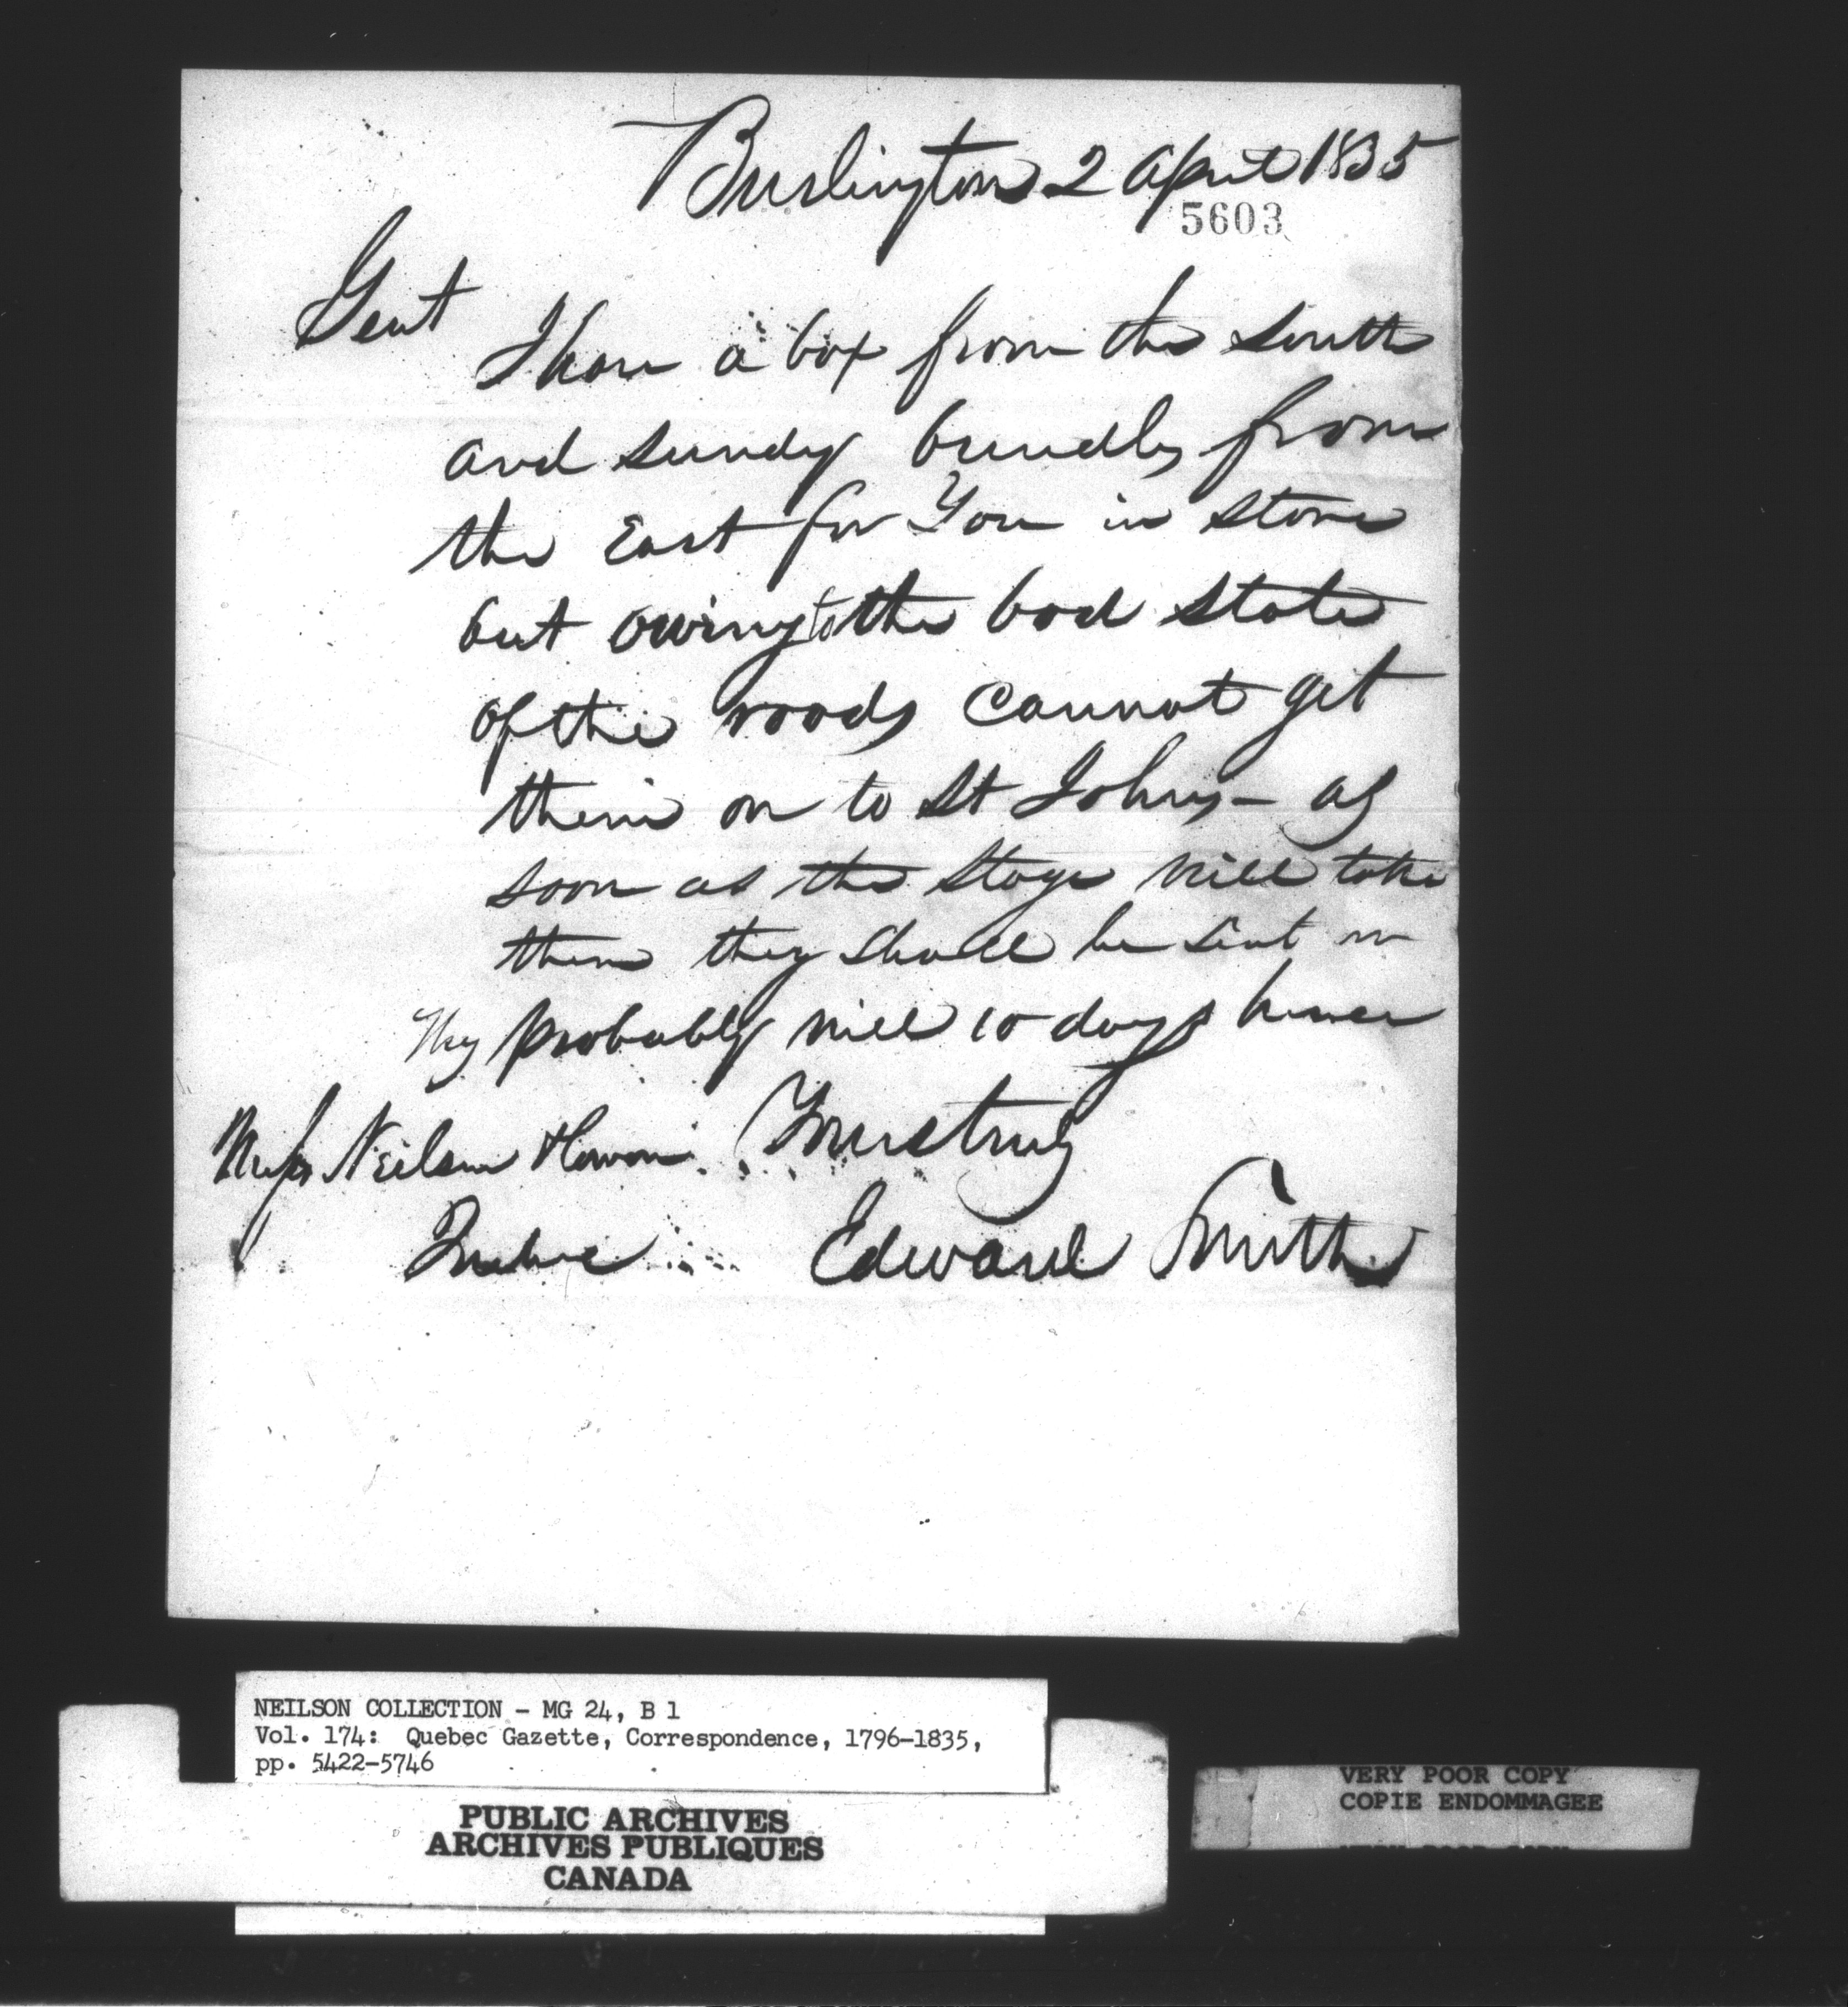 Burlington 2 April 1835
5603
Gent
I have a box from the South
and sundry bundles from
the East for You in store
but owing to the bad state
of the roads cannot get
them on to St Johns - as
soon as the Stage will take
them they shall be sent on
They probably will 10 days hence
Messrs Neilson & Cowan Yours truly
Quebec Edward Smith
NEILSON COLLECTION - MG 24, B 1
Vol. 174: Quebec Gazette, Correspondence, 1796-1835,
pp. 5422-5746
PUBLIC ARCHIVES
ARCHIVES PUBLIQUES
CANADA
VERY POOR COPY
COPIE ENDOMMAGEE
VERY POOR COPY